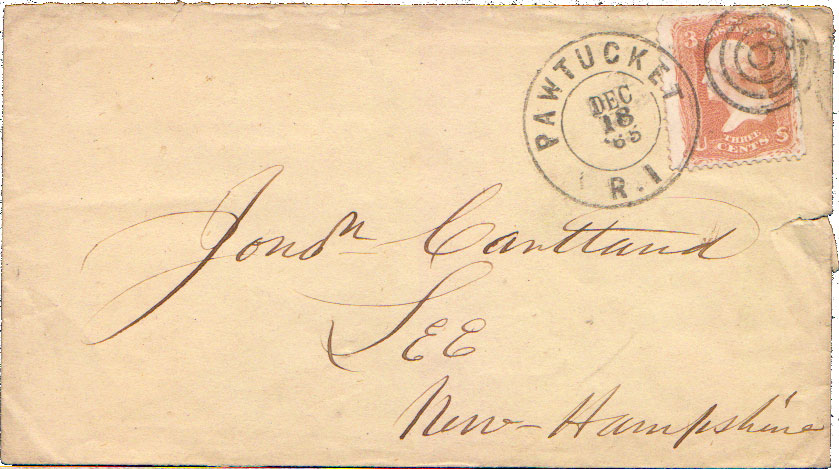 PAWTUCKET
DEC
18
'65
R.I
3
U S
THREE
CENTS
Jonan Cartland
LEE
New-Hampshire